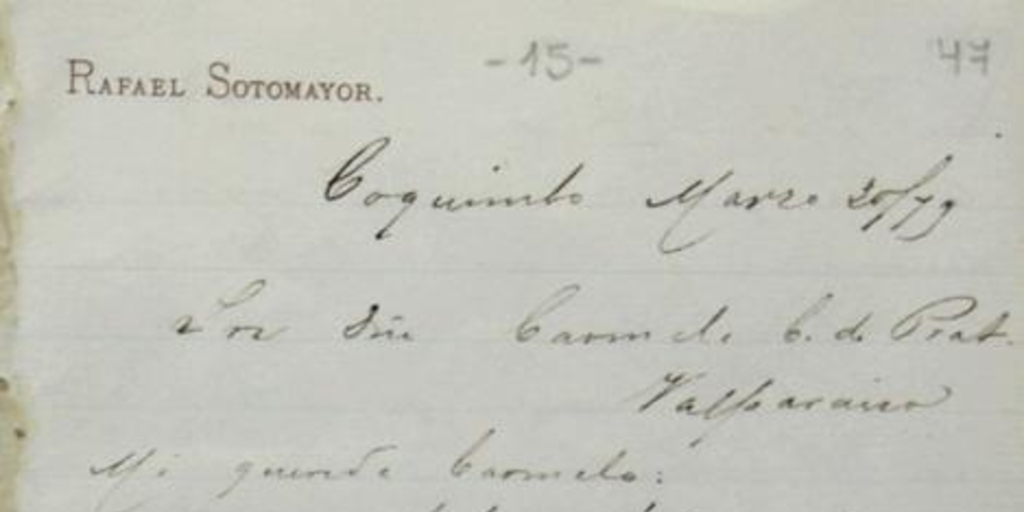 -15-
47
RAFAEL SOTOMAYOR.
Coquimbo Marzo 20/79
Sra Dña Carmela C. de Prat.
Valparaiso
Mi querida Carmela: